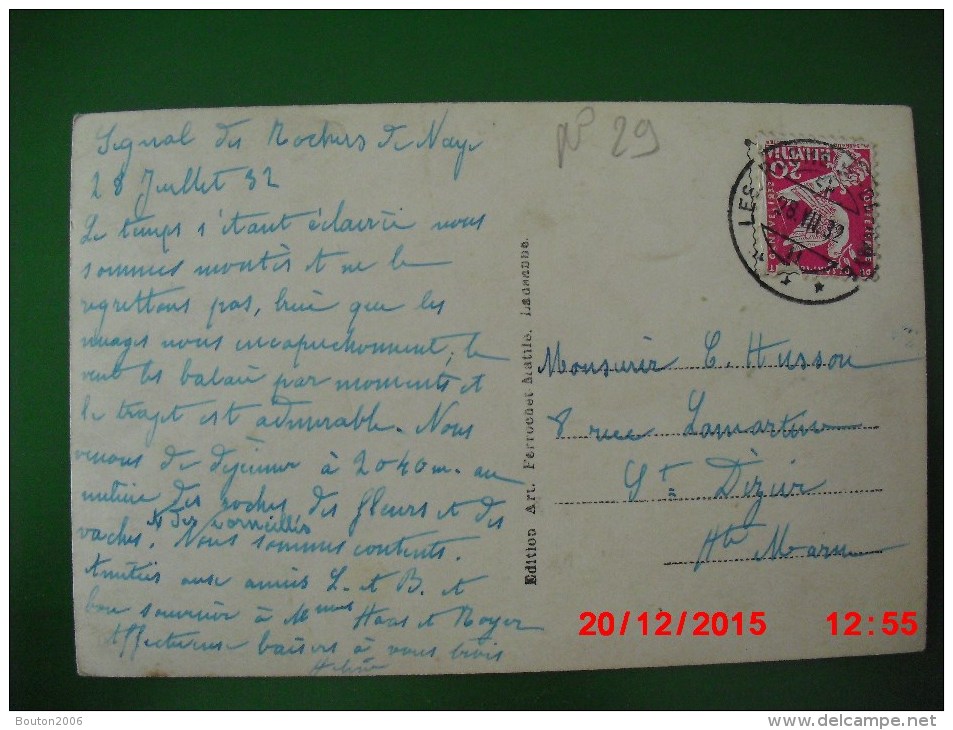 Signal des Rochers de Naye
28 Juillet 32
Le temps s'étant éclairci nous
sommes montés et ne le
regrettons pas, bien que les
nuages nous encapuchonnent; le
vent les balaie par moments et
le trajet est admirable. Nous
venons de déjeuner à 2040 m. au
milieu des roches des fleurs et des
vaches. et des corneilles
Nous sommes contents.
Amitiés aux amies L. et B. et
bon souvenir à Mmes Haas et Royer
Affectueux baisers à vous trois
No 29
HELVETIA
20
LES
28.VII.32
Monsieur C. Husson
8 rue Lamartine
St Dizier
Hte Marne
Edition Art. Perrochet Matile, Lausanne.
20/12/2015 12:55
Bouton2006
delcampe.net